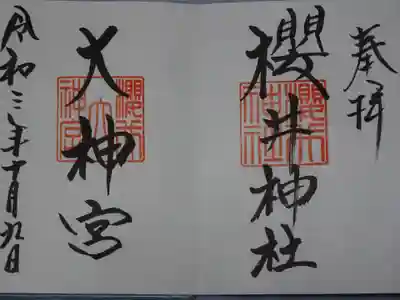 奉拝
櫻井神社
櫻井神社
大神宮
令和三年十月九日